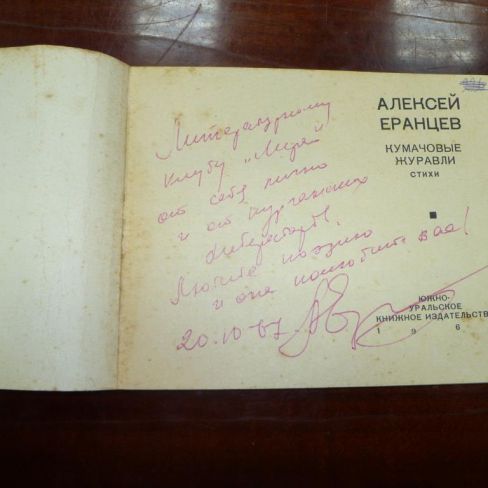 Литературному
клубу „Мирей"
от себя лично
и от курганских
литераторов.
Любите поэзию
и она полюбит вас!
20.10.67.
АЛЕКСЕЙ
ЕРАНЦЕВ
КУМАЧОВЫЕ
ЖУРАВЛИ
СТИХИ
ЮЖНО-
УРАЛЬСКОЕ
КНИЖНОЕ ИЗДАТЕЛЬСТВ
1 9 6